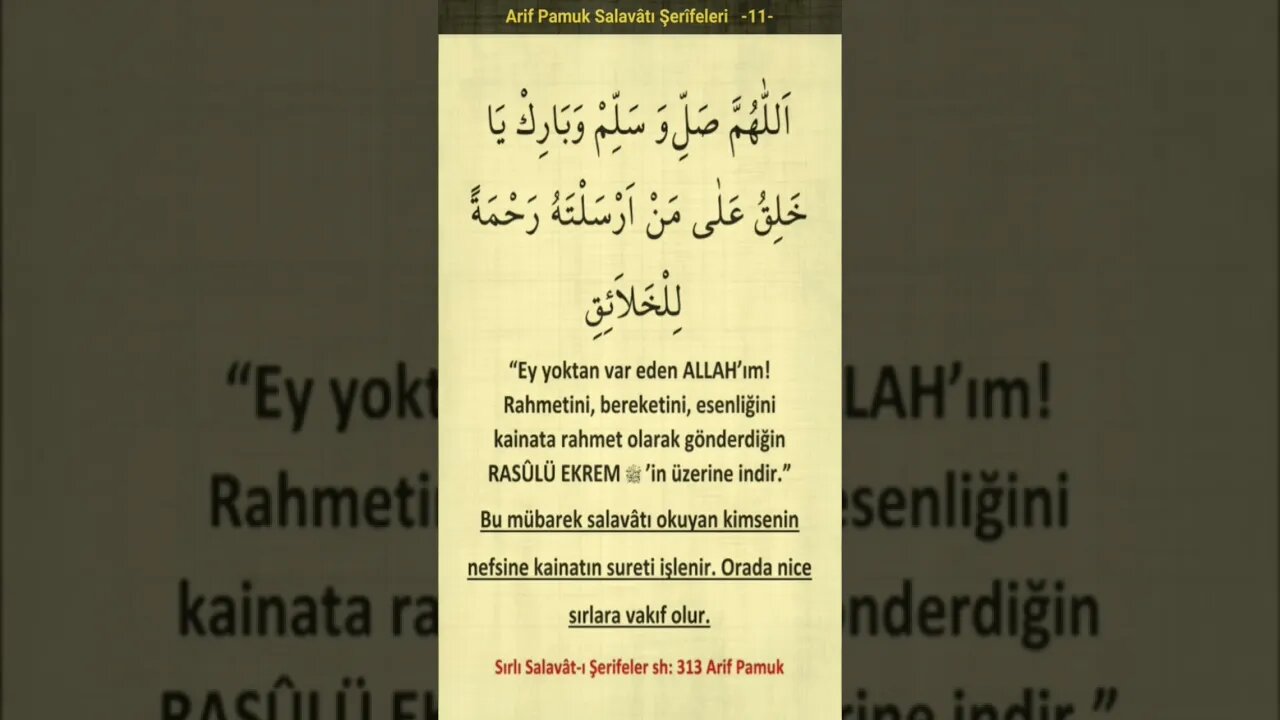 Arif Pamuk Salavâtı Şerîfeleri -11-
اَللّٰهُمَّ صَلِّ وَ سَلِّمْ وَبَارِكْ يَا
خَلِقُ عَلٰى مَنْ اَرْسَلْتَهُ رَحْمَةً
لِلْخَلاَئِقِ
“Ey yoktan var eden ALLAH’ım!
Rahmetini, bereketini, esenliğini
kainata rahmet olarak gönderdiğin
RASÛLÜ EKREM ﷺ ’in üzerine indir.”
Bu mübarek salavâtı okuyan kimsenin
nefsine kainatın sureti işlenir. Orada nice
sırlara vakıf olur.
Sırlı Salavât-ı Şerifeler sh: 313 Arif Pamuk